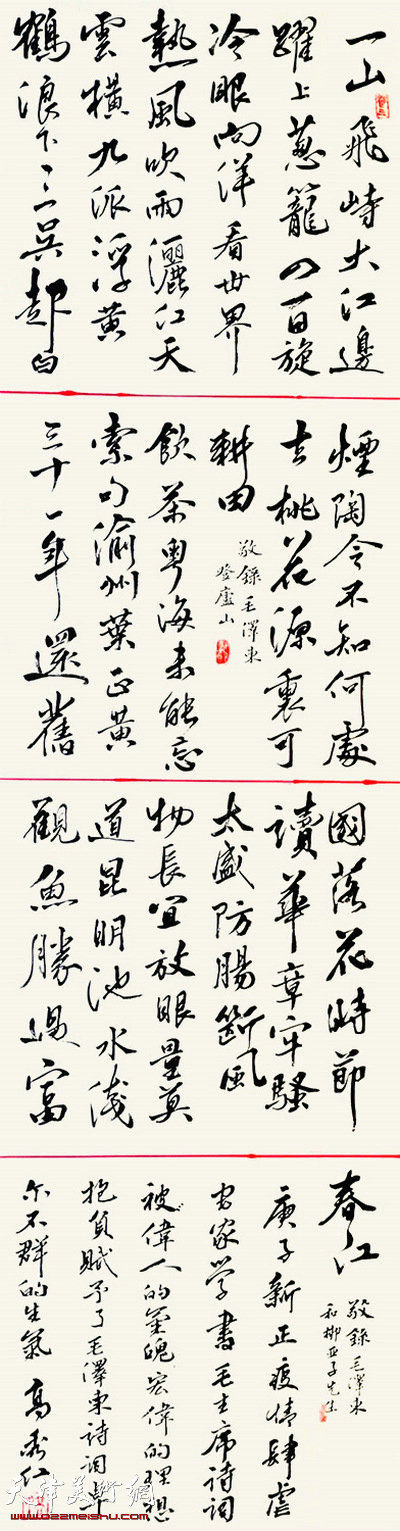 一山飛峙大江邊
躍上蔥蘢四百旋
冷眼向洋看世界
熱風吹雨灑江天
雲橫九派浮黃
鶴浪下三吳起白
煙陶令不知何處
去桃花源裏可
耕田
敬錄毛澤東
登廬山
飲茶粵海未能忘
索句渝州葉正黃
三十一年還舊
國落花時節
讀華章牢騷
太盛防腸斷風
物長宜放眼量莫
道昆明池水淺
觀魚勝過富
春江
敬錄毛澤東
和柳亞子先生
庚子新正疫情肆虐
宅家學書毛主席詩詞
被偉人的氣魄宏偉的理想
抱負賦予了毛澤東詩詞卓
尔不群的生氣
高秀仁
天津美術網
www.022meishu.com